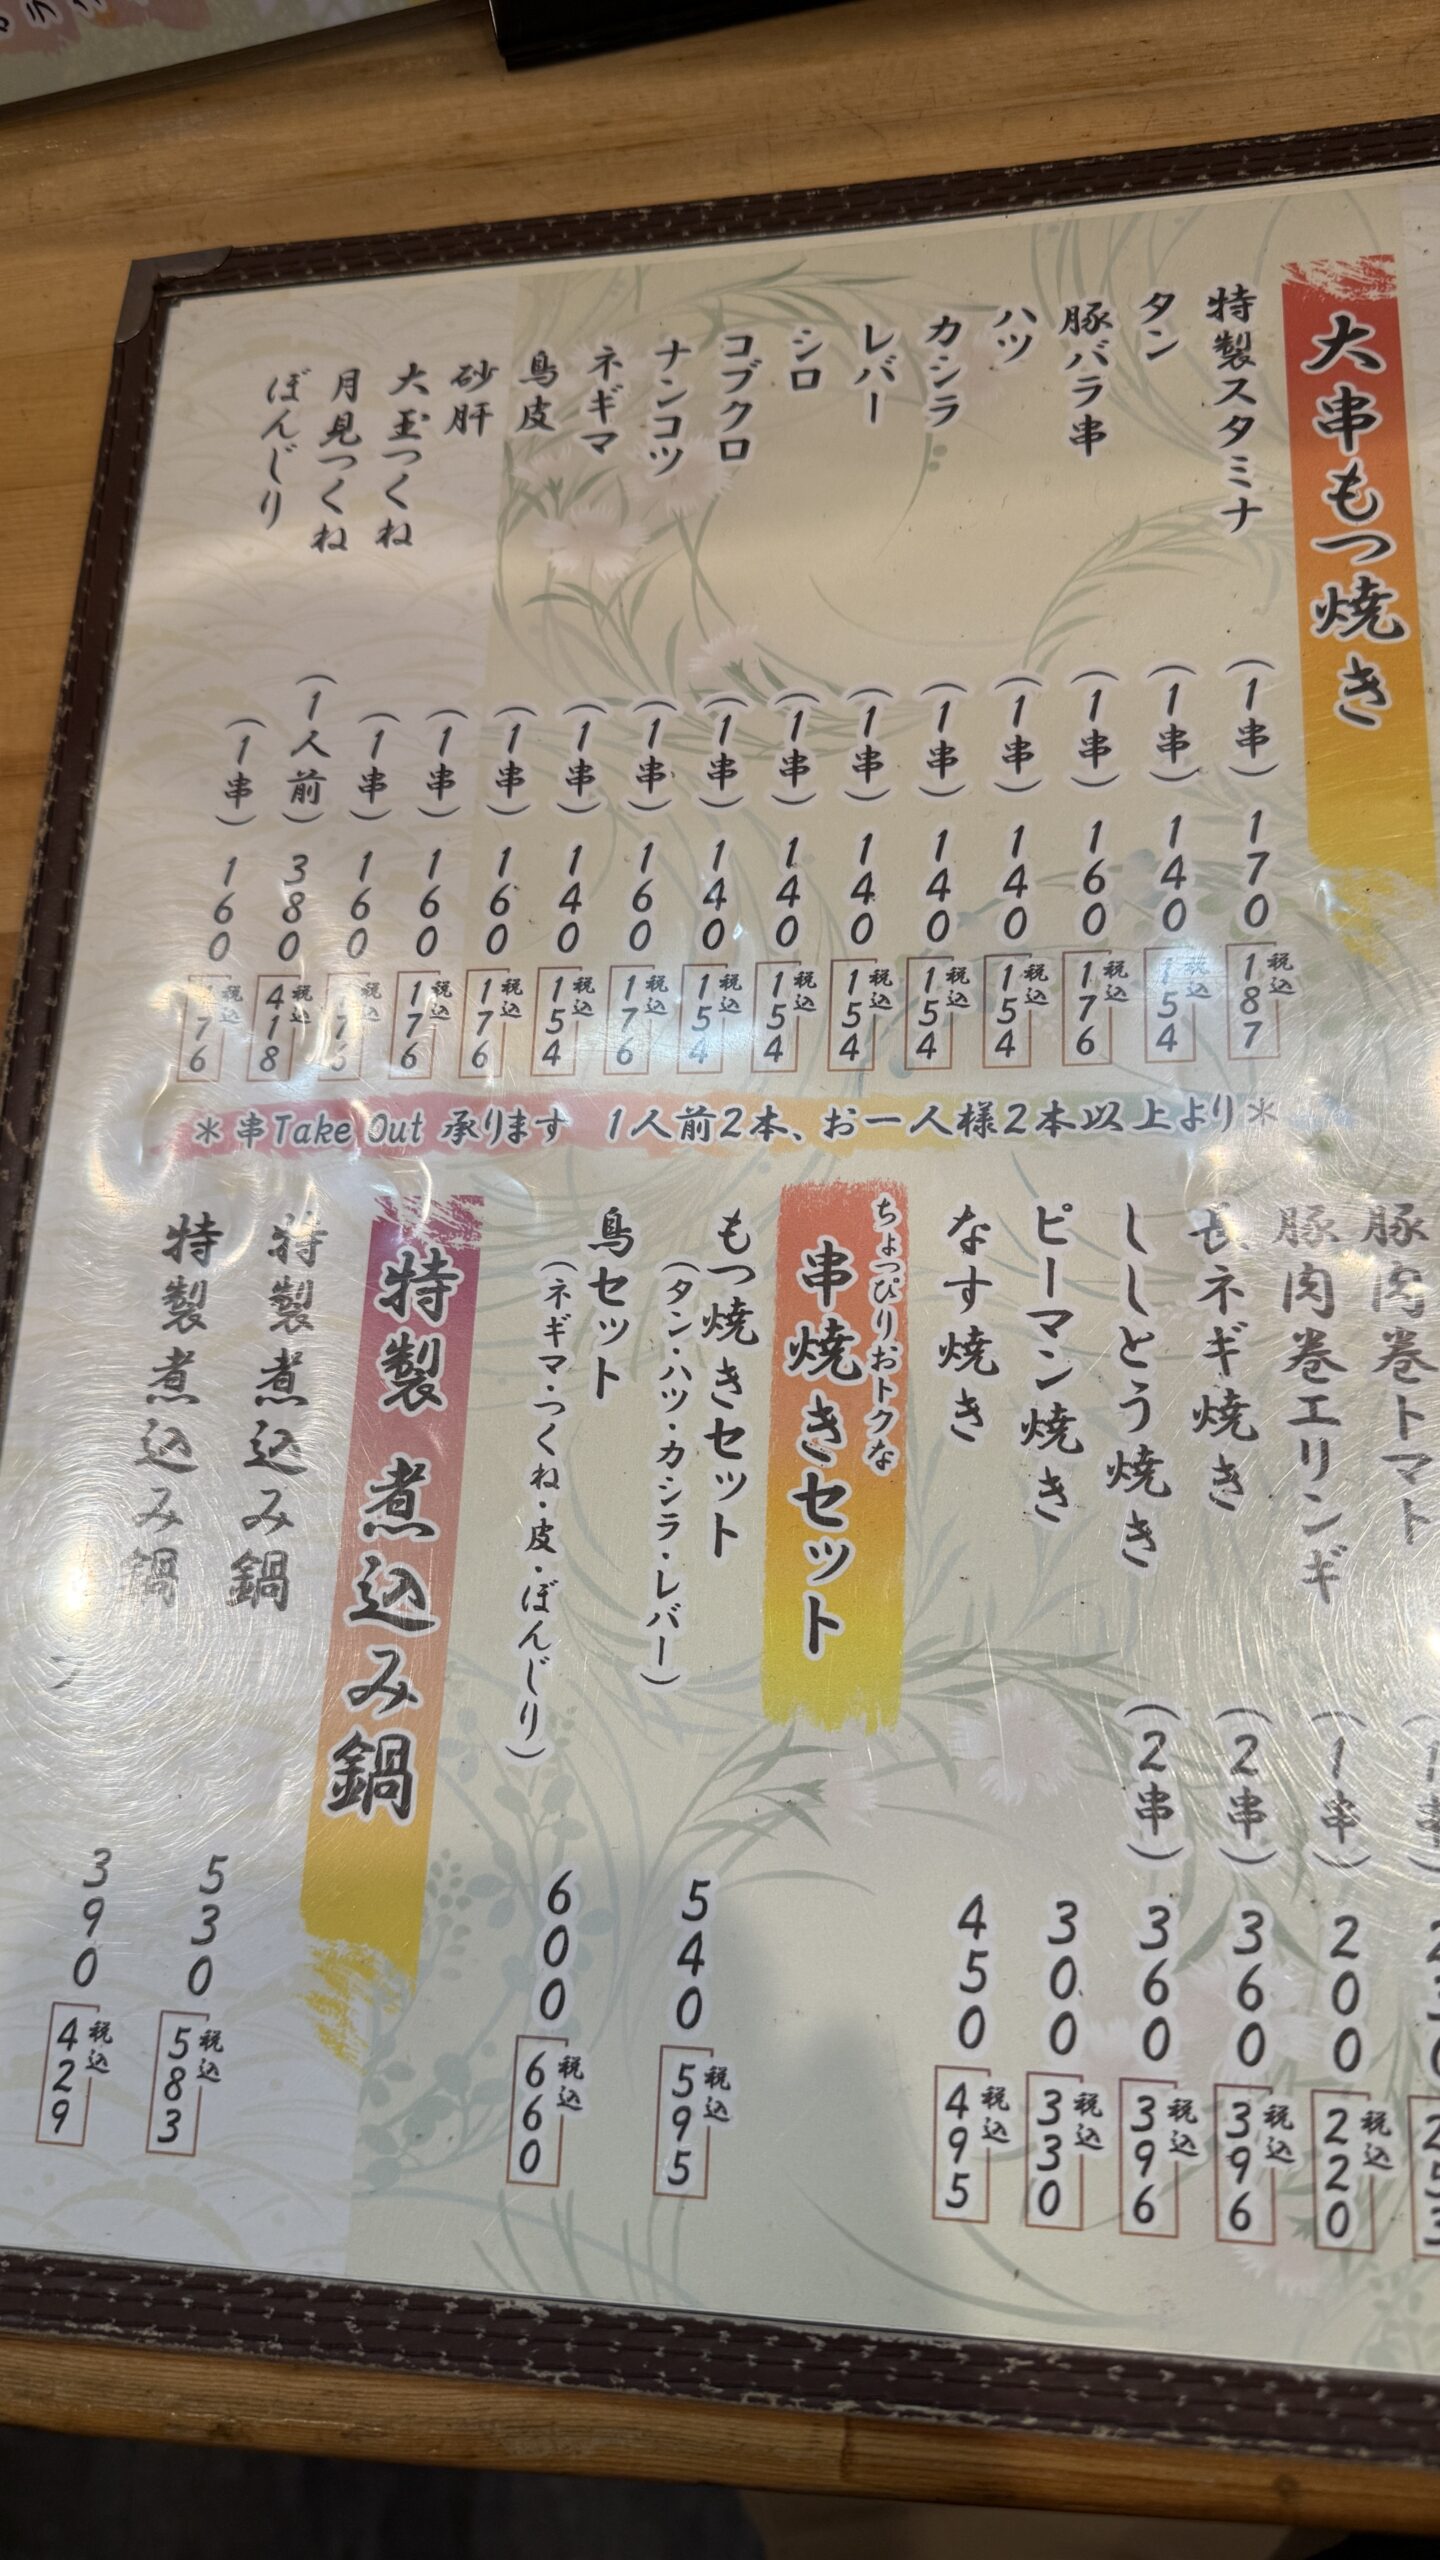 大串もつ焼き
特製スタミナ (1串) 170 税込187
タン (1串) 140 税込154
豚バラ串 (1串) 160 税込176
ハツ (1串) 140 税込154
カシラ (1串) 140 税込154
レバー (1串) 140 税込154
シロ (1串) 140 税込154
コブクロ (1串) 140 税込154
ナンコツ (1串) 160 税込176
ネギマ (1串) 140 税込154
鳥皮 (1串) 160 税込176
砂肝 (1串) 160 税込176
大玉つくね (1串) 160 税込176
月見つくね (1人前) 380 税込418
ぼんじり (1串) 160 税込176
*串Take Out 承ります 1人前2本、お一人様2本以上より*
豚肉巻トマト
豚肉巻エリンギ (1串) 200 税込220
長ネギ焼き (2串) 360 税込396
ししとう焼き (2串) 360 税込396
ピーマン焼き 300 税込330
なす焼き 450 税込495
ちょっぴりおトクな
串焼きセット
もつ焼きセット 540 税込595
(タン・ハツ・カシラ・レバー)
鳥セット 600 税込660
(ネギマ・つくね・皮・ぼんじり)
特製 煮込み鍋
特製煮込み鍋 530 税込583
特製煮込み鍋 390 税込429